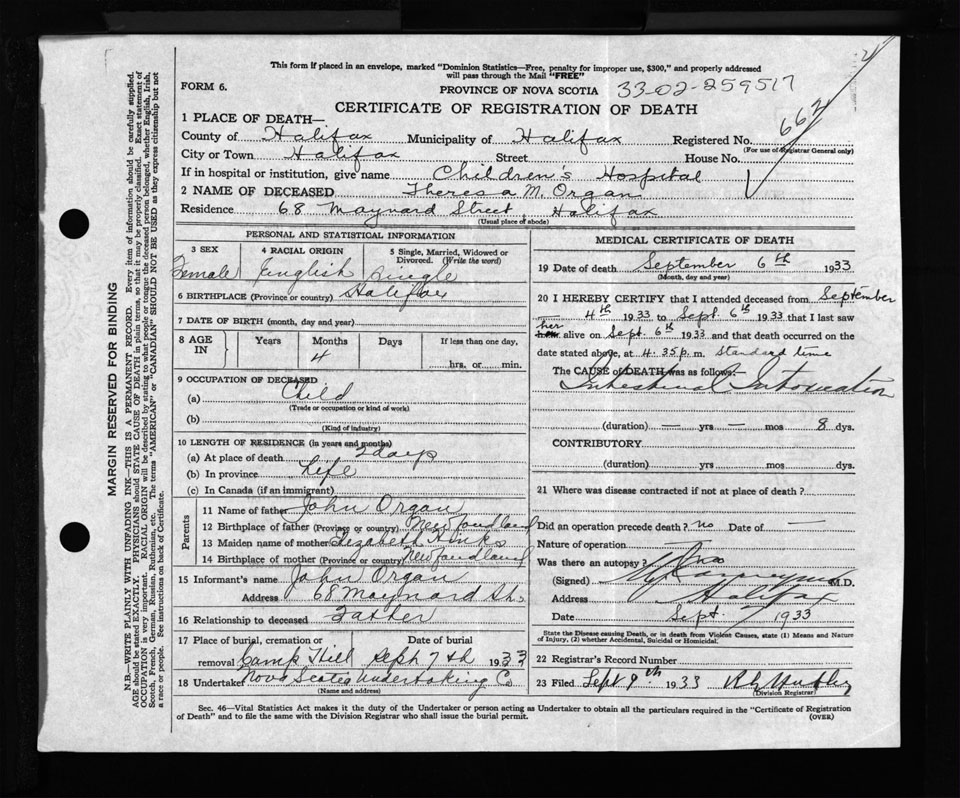 This form if placed in an envelope, marked "Dominion Statistics—Free, penalty for improper use, $300," and properly addressed
will pass through the Mail "FREE"
FORM 6.
PROVINCE OF NOVA SCOTIA 33-02-259517
CERTIFICATE OF REGISTRATION OF DEATH
1 PLACE OF DEATH—
County of Halifax Municipality of Halifax Registered No. 662
(For use of Registrar General only)
City or Town Halifax Street House No.
If in hospital or institution, give name Children's Hospital
2 NAME OF DECEASED Theresa M. Organ
Residence 68 Maynard Street Halifax
(Usual place of abode)
PERSONAL AND STATISTICAL INFORMATION
3 SEX 4 RACIAL ORIGIN 5 Single, Married, Widowed or Divorced. (Write the word)
Female English Single
6 BIRTHPLACE (Province or country) Halifax
7 DATE OF BIRTH (month, day and year)
8 AGE IN Years Months Days If less than one day,
4 hrs. or min.
9 OCCUPATION OF DECEASED
(a) Child
(Trade or occupation or kind of work)
(b)
(Kind of industry)
10 LENGTH OF RESIDENCE (in years and months)
(a) At place of death 2 days
(b) In province Life
(c) In Canada (if an immigrant)
Parents
11 Name of father John Organ
12 Birthplace of father (Province or country) Newfoundland
13 Maiden name of mother Elizabeth
14 Birthplace of mother (Province or country) Newfoundland
15 Informant's name John Organ
Address 68 Maynard St.
16 Relationship to deceased Father
17 Place of burial, cremation or Date of burial
removal Camp Hill Sept 7th 1933
18 Undertaker Nova Scotia Undertaking Co
(Name and address)
MEDICAL CERTIFICATE OF DEATH
19 Date of death September 6th 1933
(Month, day and year)
20 I HEREBY CERTIFY that I attended deceased from September
4th 1933 to Sept. 6th 1933 that I last saw
her alive on Sept. 6th 1933 and that death occurred on the
date stated above, at 4.35 p. m. Standard time
The CAUSE of DEATH was as follows:—
Intestinal Intoxication
(duration) — yrs — mos 8 dys.
CONTRIBUTORY.
(duration) yrs mos dys.
21 Where was disease contracted if not at place of death?
Did an operation precede death? no Date of —
Nature of operation
Was there an autopsy? no
(Signed) M.D.
Address Halifax
Date Sept 7 1933
State the Disease causing Death, or in death from Violent Causes, state (1) Means and Nature
of Injury, (2) whether Accidental, Suicidal or Homicidal.
22 Registrar's Record Number
23 Filed Sept 9th 1933
(Division Registrar)
Sec. 46—Vital Statistics Act makes it the duty of the Undertaker or person acting as Undertaker to obtain all the particulars required in the "Certificate of Registration
of Death" and to file the same with the Division Registrar who shall issue the burial permit. (OVER)
MARGIN RESERVED FOR BINDING
N.B.—WRITE PLAINLY WITH UNFADING INK—THIS IS A PERMANENT RECORD. Every item of information should be carefully supplied.
AGE should be stated EXACTLY. PHYSICIANS should STATE CAUSE OF DEATH in plain terms, so that it may be properly classified. Exact statement of
OCCUPATION is very important. RACIAL ORIGIN will be described by stating to what people or tongue the deceased person belonged, whether English, Irish,
Scotch, French, German, Russian, Ruthenian, etc. The terms "AMERICAN" or "CANADIAN" SHOULD NOT BE USED as they express citizenship but not
a race or people. See instructions on back of Certificate.